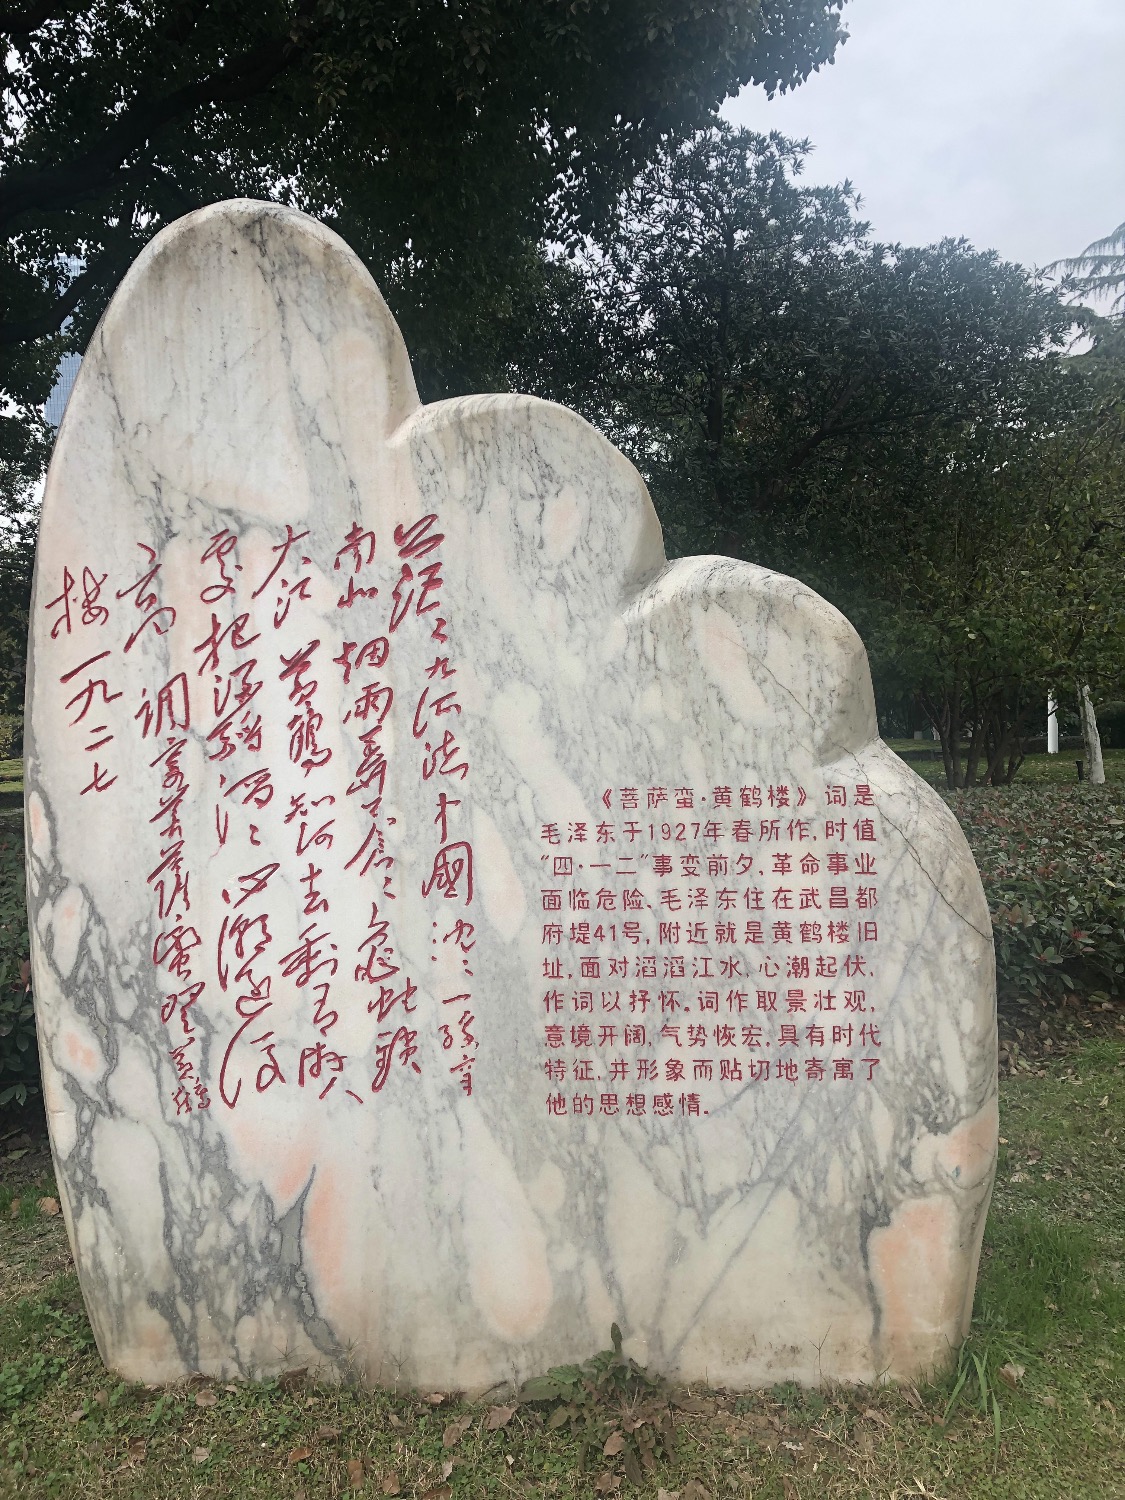 茫〻九派流中國沈〻一線穿
南北烟雨莽蒼〻龜蛇鎖
大江黄鶴知何去剩有遊人
處把酒酹滔〻心潮逐浪
高調寄菩薩蠻登黄鶴
樓一九二七
《菩萨蛮·黄鹤楼》词是
毛泽东于1927年春所作,时值
“四·一二”事变前夕,革命事业
面临危险、毛泽东住在武昌都
府堤41号,附近就是黄鹤楼旧
址,面对滔滔江水,心潮起伏,
作词以抒怀。词作取景壮观,
意境开阔,气势恢宏,具有时代
特征,井形象而贴切地寄寓了
他的思想感情。